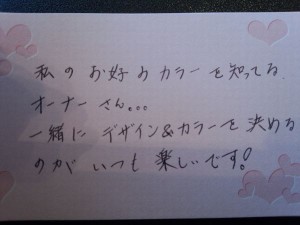 私のお好みカラーを知ってる
オーナーさん。。。
一緒にデザイン&カラーを決める
のがいつも楽しいです!